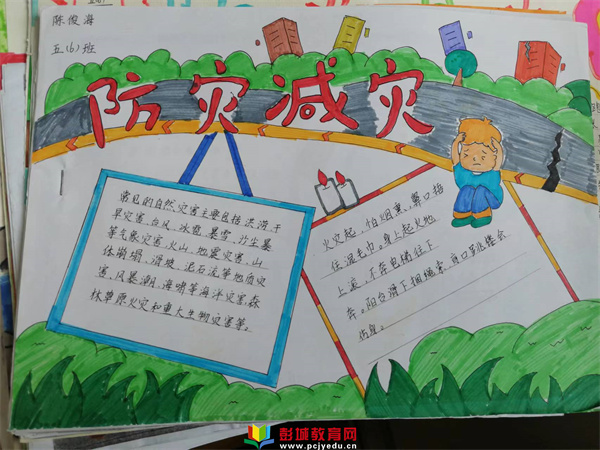 陈俊海
五(6)班
防灾减灾
常见的自然灾害主要包括洪涝、干
旱灾害,台风、冰雹、暴雪、沙尘暴
等气象灾害,火山、地震灾害,山
体崩塌、滑坡、泥石流等地质灾
害,风暴潮、海啸等海洋灾害,森
林草原火灾和重大生物灾害等。
火灾起,怕烟熏,鼻口捂
住湿毛巾,身上起火地
上滚,不乘电梯往下
奔。阳台滑下捆绳索,盲目跳楼会
伤身。
彭城教育网
www.pcjyedu.cn